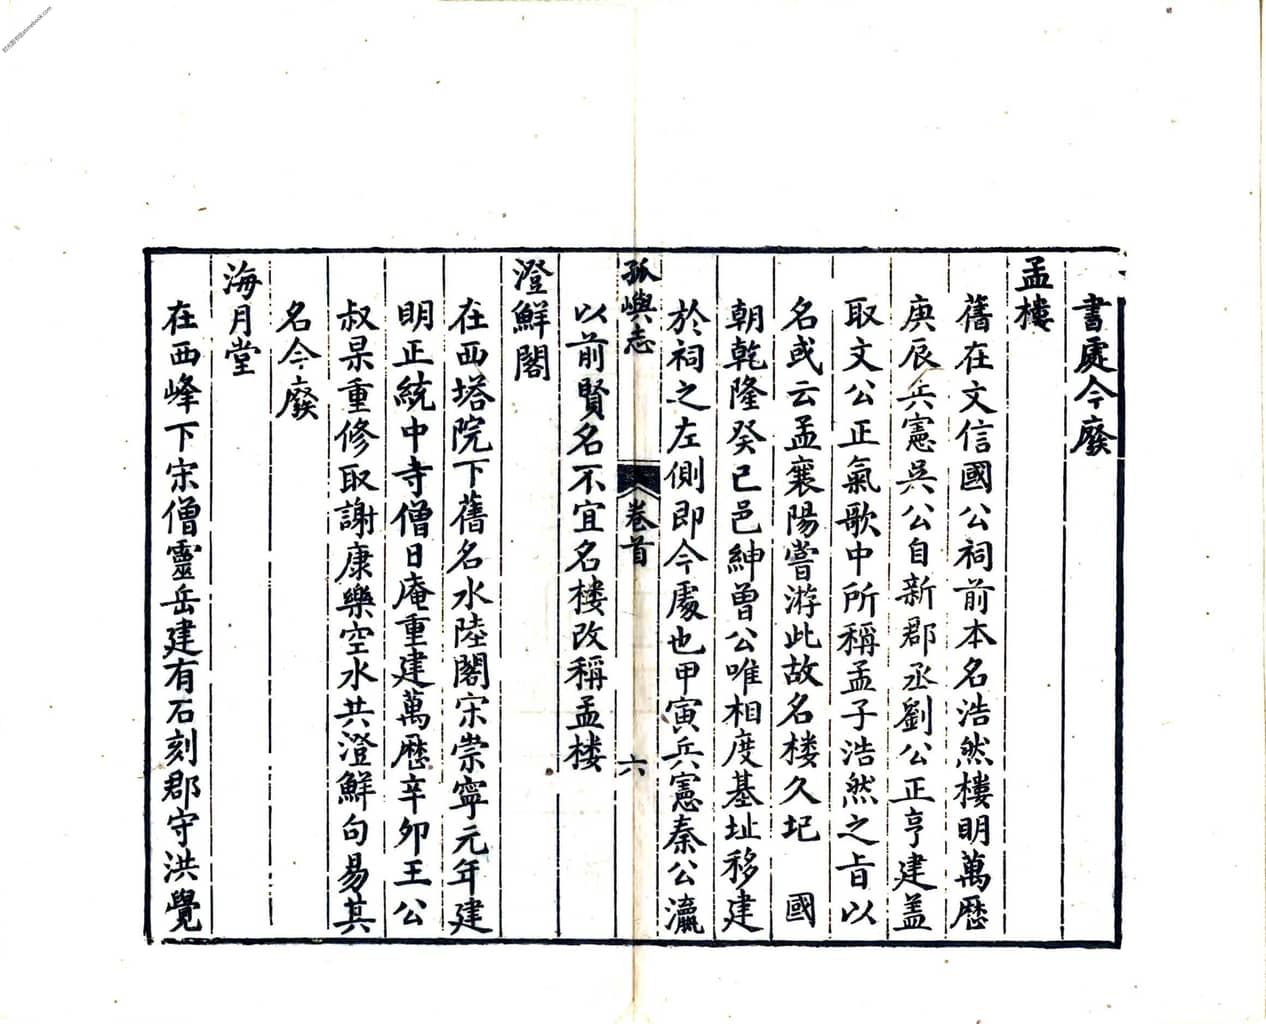 書處今廢
孟樓
舊在文信國公祠前本名浩然樓明萬歷
庚辰兵憲吳公自新郡丞劉公正亨建蓋
取文公正氣歌中所稱孟子浩然之旨以
名或云孟襄陽嘗游此故名樓久圮 國
朝乾隆癸巳邑紳曾公唯相度基址移建
於祠之左側即今處也甲寅兵憲秦公瀛
以前賢名不宜名樓改稱孟樓
孤嶼志 卷首 六
澄鮮閣
在西塔院下舊名水陸閣宋崇寧元年建
明正統中寺僧日庵重建萬歷辛卯王公
叔杲重修取謝康樂空水共澄鮮句易其
名今廢
海月堂
在西峰下宋僧靈岳建有石刻郡守洪覺